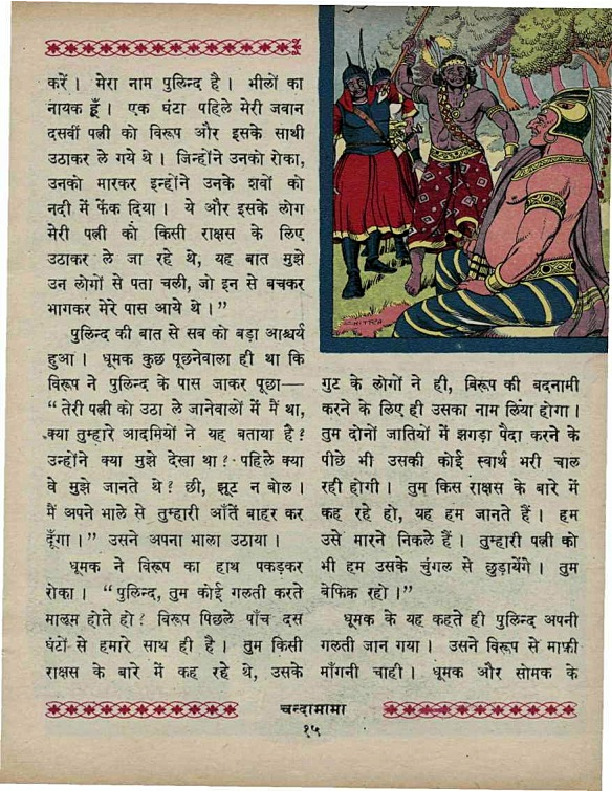 करें । मेरा नाम पुलिन्द है । भीलों का
नायक हूँ । एक घंटा पहिले मेरी जवान
दसवीं पत्नी को विरूप और इसके साथी
उठाकर ले गये थे । जिन्होंने उनको रोका,
उनको मारकर इन्होंने उनके शवों को
नदी में फेंक दिया । ये और इसके लोग
मेरी पत्नी को किसी राक्षस के लिए
उठाकर ले जा रहे थे, यह बात मुझे
उन लोगों से पता चली, जो इन से बचकर
भागकर मेरे पास आये थे ।”
पुलिन्द की बात से सब को बड़ा आश्चर्य
हुआ । धूमक कुछ पूछनेवाला ही था कि
विरूप ने पुलिन्द के पास जाकर पूछा—
“तेरी पत्नी को उठा ले जानेवालों में मैं था,
क्या तुम्हारे आदमियों ने यह बताया है ?
उन्होंने क्या मुझे देखा था ? पहिले क्या
वे मुझे जानते थे ? छी, झूट न बोल ।
मैं अपने भाले से तुम्हारी आँतें बाहर कर
दूँगा ।” उसने अपना भाला उठाया ।
धूमक ने विरूप का हाथ पकड़कर
रोका । “पुलिन्द, तुम कोई गलती करते
मालूम होते हो ? विरूप पिछले पाँच दस
घंटों से हमारे साथ ही है । तुम किसी
राक्षस के बारे में कह रहे थे, उसके
गुट के लोगों ने ही, विरूप की बदनामी
करने के लिए ही उसका नाम लिया होगा ।
तुम दोनों जातियों में झगड़ा पैदा करने के
पीछे भी उसकी कोई स्वार्थ भरी चाल
रही होगी । तुम किस राक्षस के बारे में
कह रहे हो, यह हम जानते हैं । हम
उसे मारने निकले हैं । तुम्हारी पत्नी को
भी हम उसके चुंगल से छुड़ायेंगे । तुम
बेफिक्र रहो ।”
धूमक के यह कहते ही पुलिन्द अपनी
गलती जान गया । उसने विरूप से माफ़ी
माँगनी चाही । धूमक और सोमक के
चन्दामामा
१५